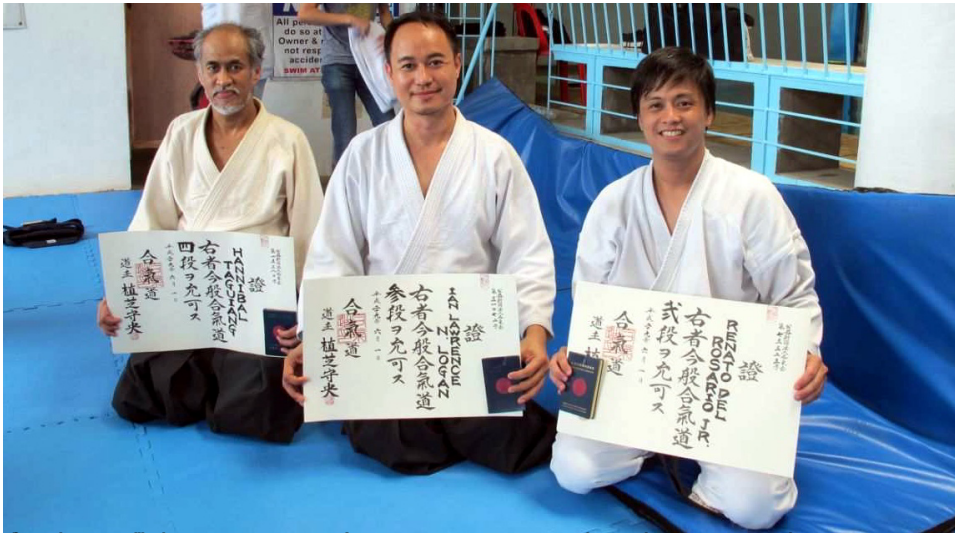 All pers
do so at
Owner & r
not resp
accide
SWIM AT
證
HANNIBAL
TAGUIANG
右者今般合氣道
四段ヲ允可ス
合氣道
道主 植芝守央
證
IAN LAWRENCE
N. LOGAN
右者今般合氣道
参段ヲ允可ス
合氣道
道主 植芝守央
證
RENATO DEL
ROSARIO JR.
右者今般合氣道
弐段ヲ允可ス
合氣道
道主 植